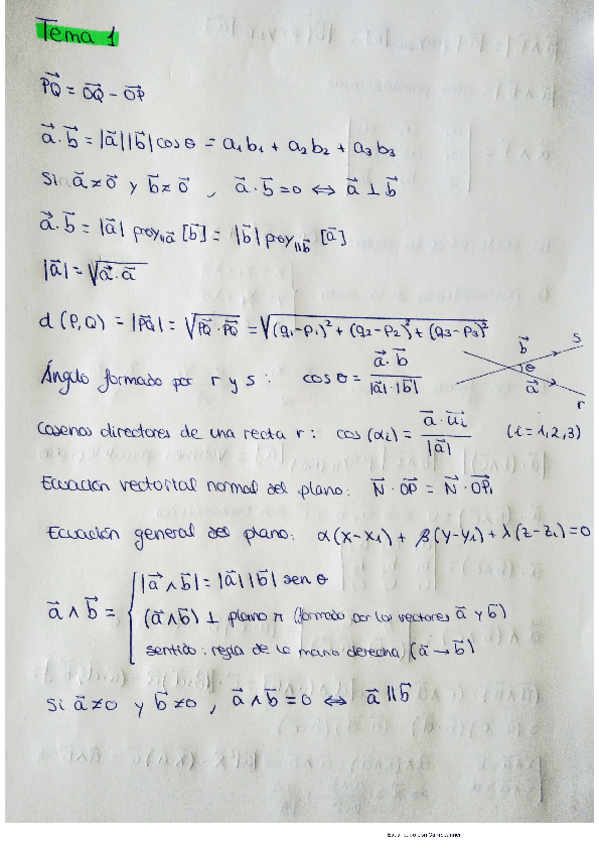 Tema 1
PQ⃗ = OQ⃗ - OP⃗
a⃗ · b⃗ = |a⃗||b⃗| cos θ = a₁b₁ + a₂b₂ + a₃b₃
Si a⃗ ≠ 0⃗ y b⃗ ≠ 0⃗ , a⃗ · b⃗ = 0 ⇔ a⃗ ⊥ b⃗
a⃗ · b⃗ = |a⃗| proy∥a⃗ [b⃗] = |b⃗| proy∥b⃗ [a⃗]
|a⃗| = √(a⃗ · a⃗)
d(P,Q) = |PQ⃗| = √(PQ⃗ · PQ⃗) = √((q₁-p₁)² + (q₂-p₂)² + (q₃-p₃)²)
Ángulo formado por r y s : cos θ = a⃗ · b⃗ / |a⃗|·|b⃗|
b⃗ s θ a⃗ r
Cosenos directores de una recta r : cos (αi) = a⃗ · u⃗i / |a⃗| (i = 1,2,3)
Ecuación vectorial normal del plano: N⃗ · OP⃗ = N⃗ · OP₁⃗
Ecuación general del plano: α(x-x₁) + β(y-y₁) + λ(z-z₁) = 0
a⃗ ∧ b⃗ = { |a⃗ ∧ b⃗| = |a⃗||b⃗| sen θ
(a⃗ ∧ b⃗) ⊥ plano π (formado por los vectores a⃗ y b⃗)
sentido: regla de la mano derecha (a⃗ → b⃗)
Si a⃗ ≠ 0 y b⃗ ≠ 0 , a⃗ ∧ b⃗ = 0 ⇔ a⃗ ∥ b⃗